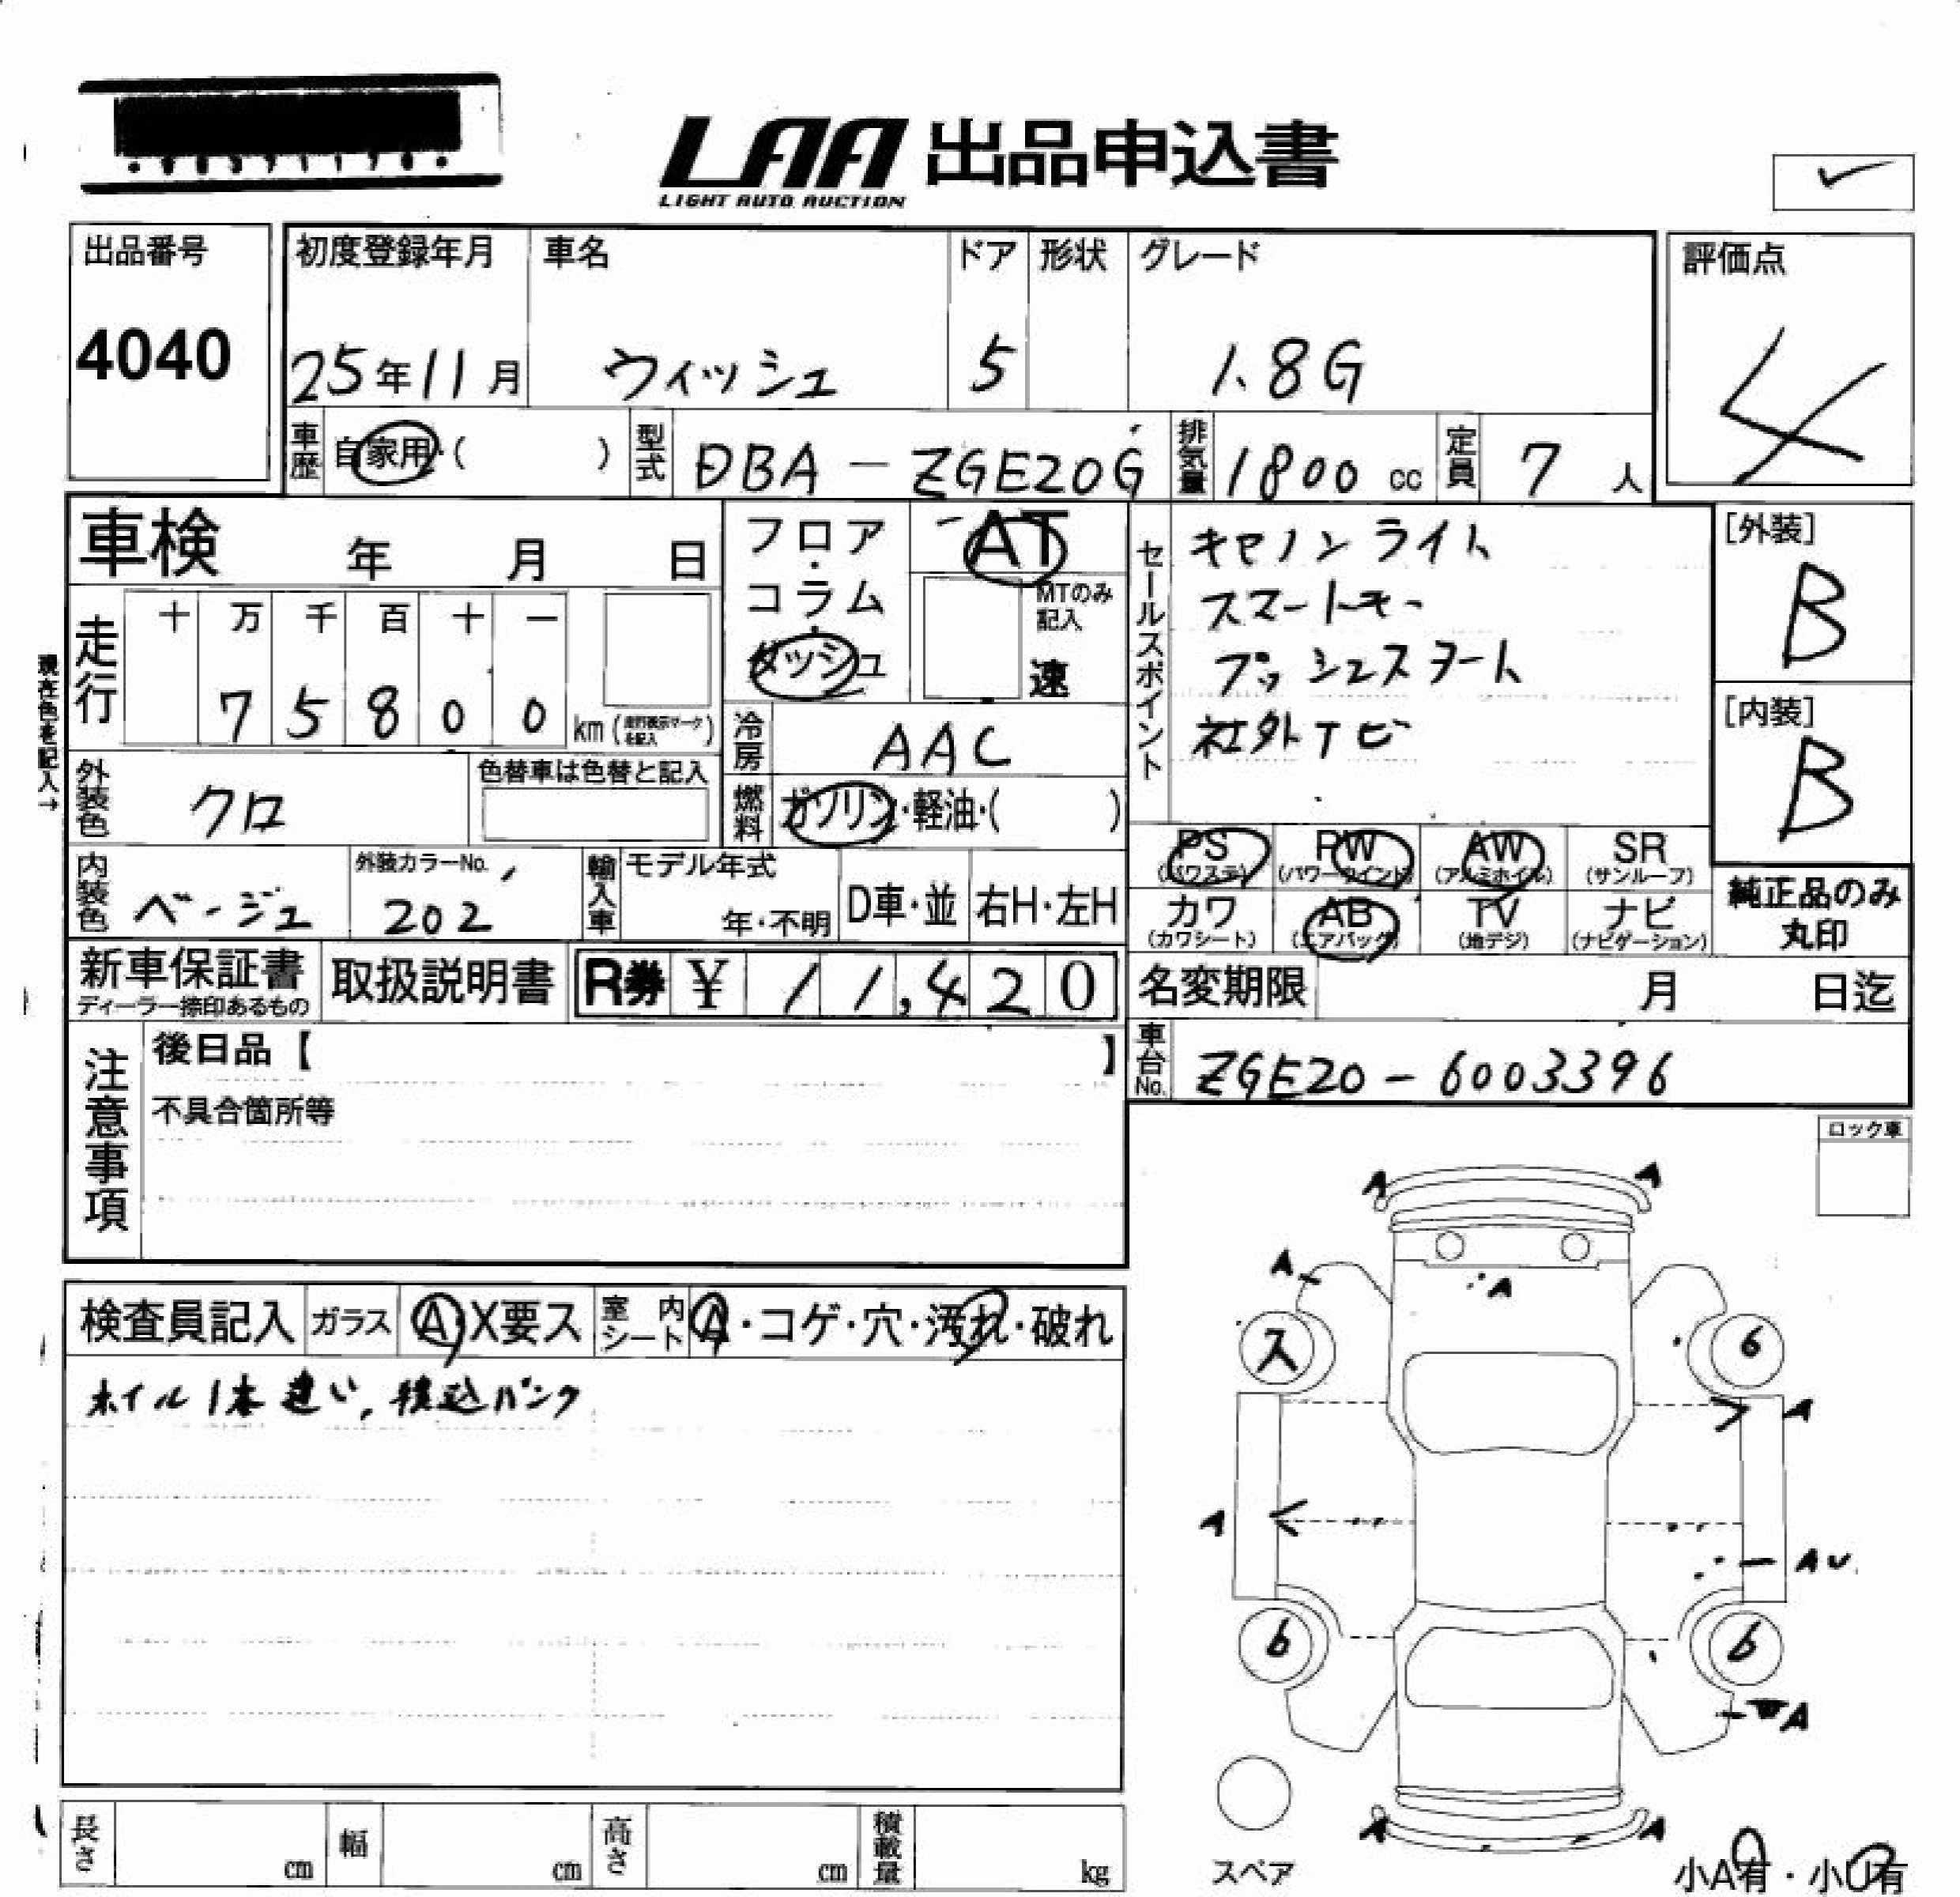 LAA 出品申込書
LIGHT AUTO AUCTION
出品番号
4040
初度登録年月 車名 ドア 形状 グレード
25年11月 ウィッシュ 5 1.8G
評価点
4
車歴 自家用・( ) 型式 DBA-ZGE20G 排気量 1800 cc 定員 7 人
車検 年 月 日
フロア・コラム・ダッシュ
AT
MTのみ記入
速
現在色を記入→
走行
十 万 千 百 十 一
7 5 8 0 0 km (走行表示マークを記入)
冷房 AAC
燃料 ガソリン・軽油・( )
外装色 クロ
色替車は色替と記入
内装色 ベージュ
外装カラーNo.
202
輸入車 モデル年式
年・不明 D車・並 右H・左H
セールスポイント
キセノンライト
スマートキー
プッシュスタート
社外ナビ
[外装]
B
[内装]
B
PS (パワステ) PW (パワーウインド) AW (アルミホイル) SR (サンルーフ)
カワ (カワシート) AB (エアバッグ) TV (地デジ) ナビ (ナビゲーション)
純正品のみ
丸印
新車保証書
ディーラー捺印あるもの
取扱説明書 R券 ¥ 11,420
名変期限 月 日迄
車台No. ZGE20-6003396
注意事項
後日品【 】
不具合箇所等
ロック車
検査員記入 ガラス A・X要ス 室内シート A・コゲ・穴・汚れ・破れ
ホイル1本違い, 積込パンク
A A
A
A
ス 6
A
A
AU
6 6
A
A A
スペア
小A有・小U有
長さ cm 幅 cm 高さ cm 積載量 kg